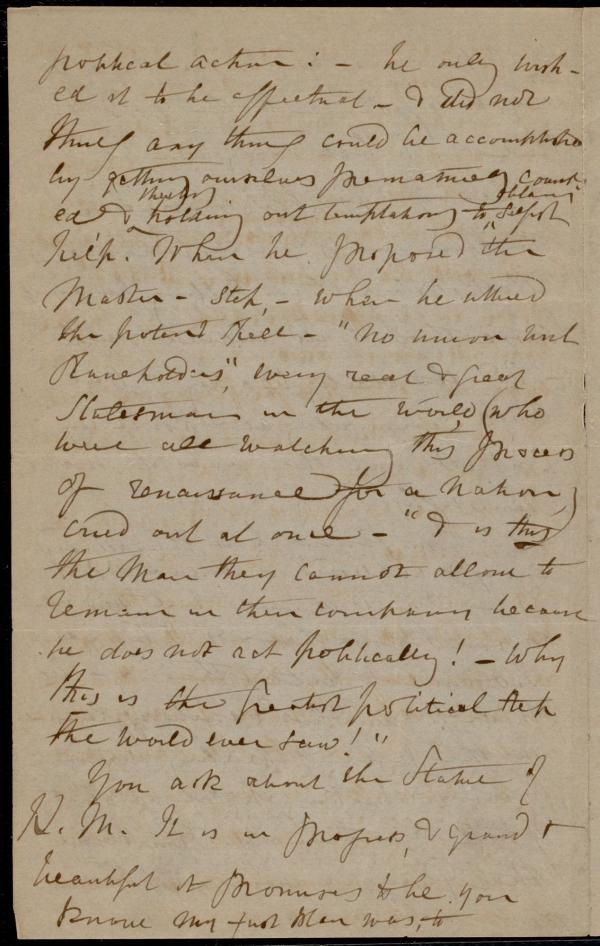 political action: – he only wish-
ed it to be effectual – & did not
think any thing could be accomplished
by getting ourselves prematurely count-
ed & thereby holding out temptations to obtain selfish
help. When he proposed "the
Master – step, – when he uttered
the potent spell – "no union with
Slaveholders", every real & great
Statesman in the world (who
were all watching this process
of renaissance for a nation)
cried out at once – "& is this
the man they cannot allow to
remain in their company because
he does not act politically! – Why
this is the greatest political step
the world ever saw!"
You ask about the Statue of
H. M. It is in progress, & grand &
beautiful it promises to be. You
know my first plan was, to